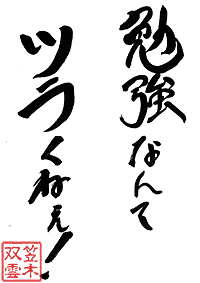 勉強なんて
ツラくねえ!
笠木
双雲